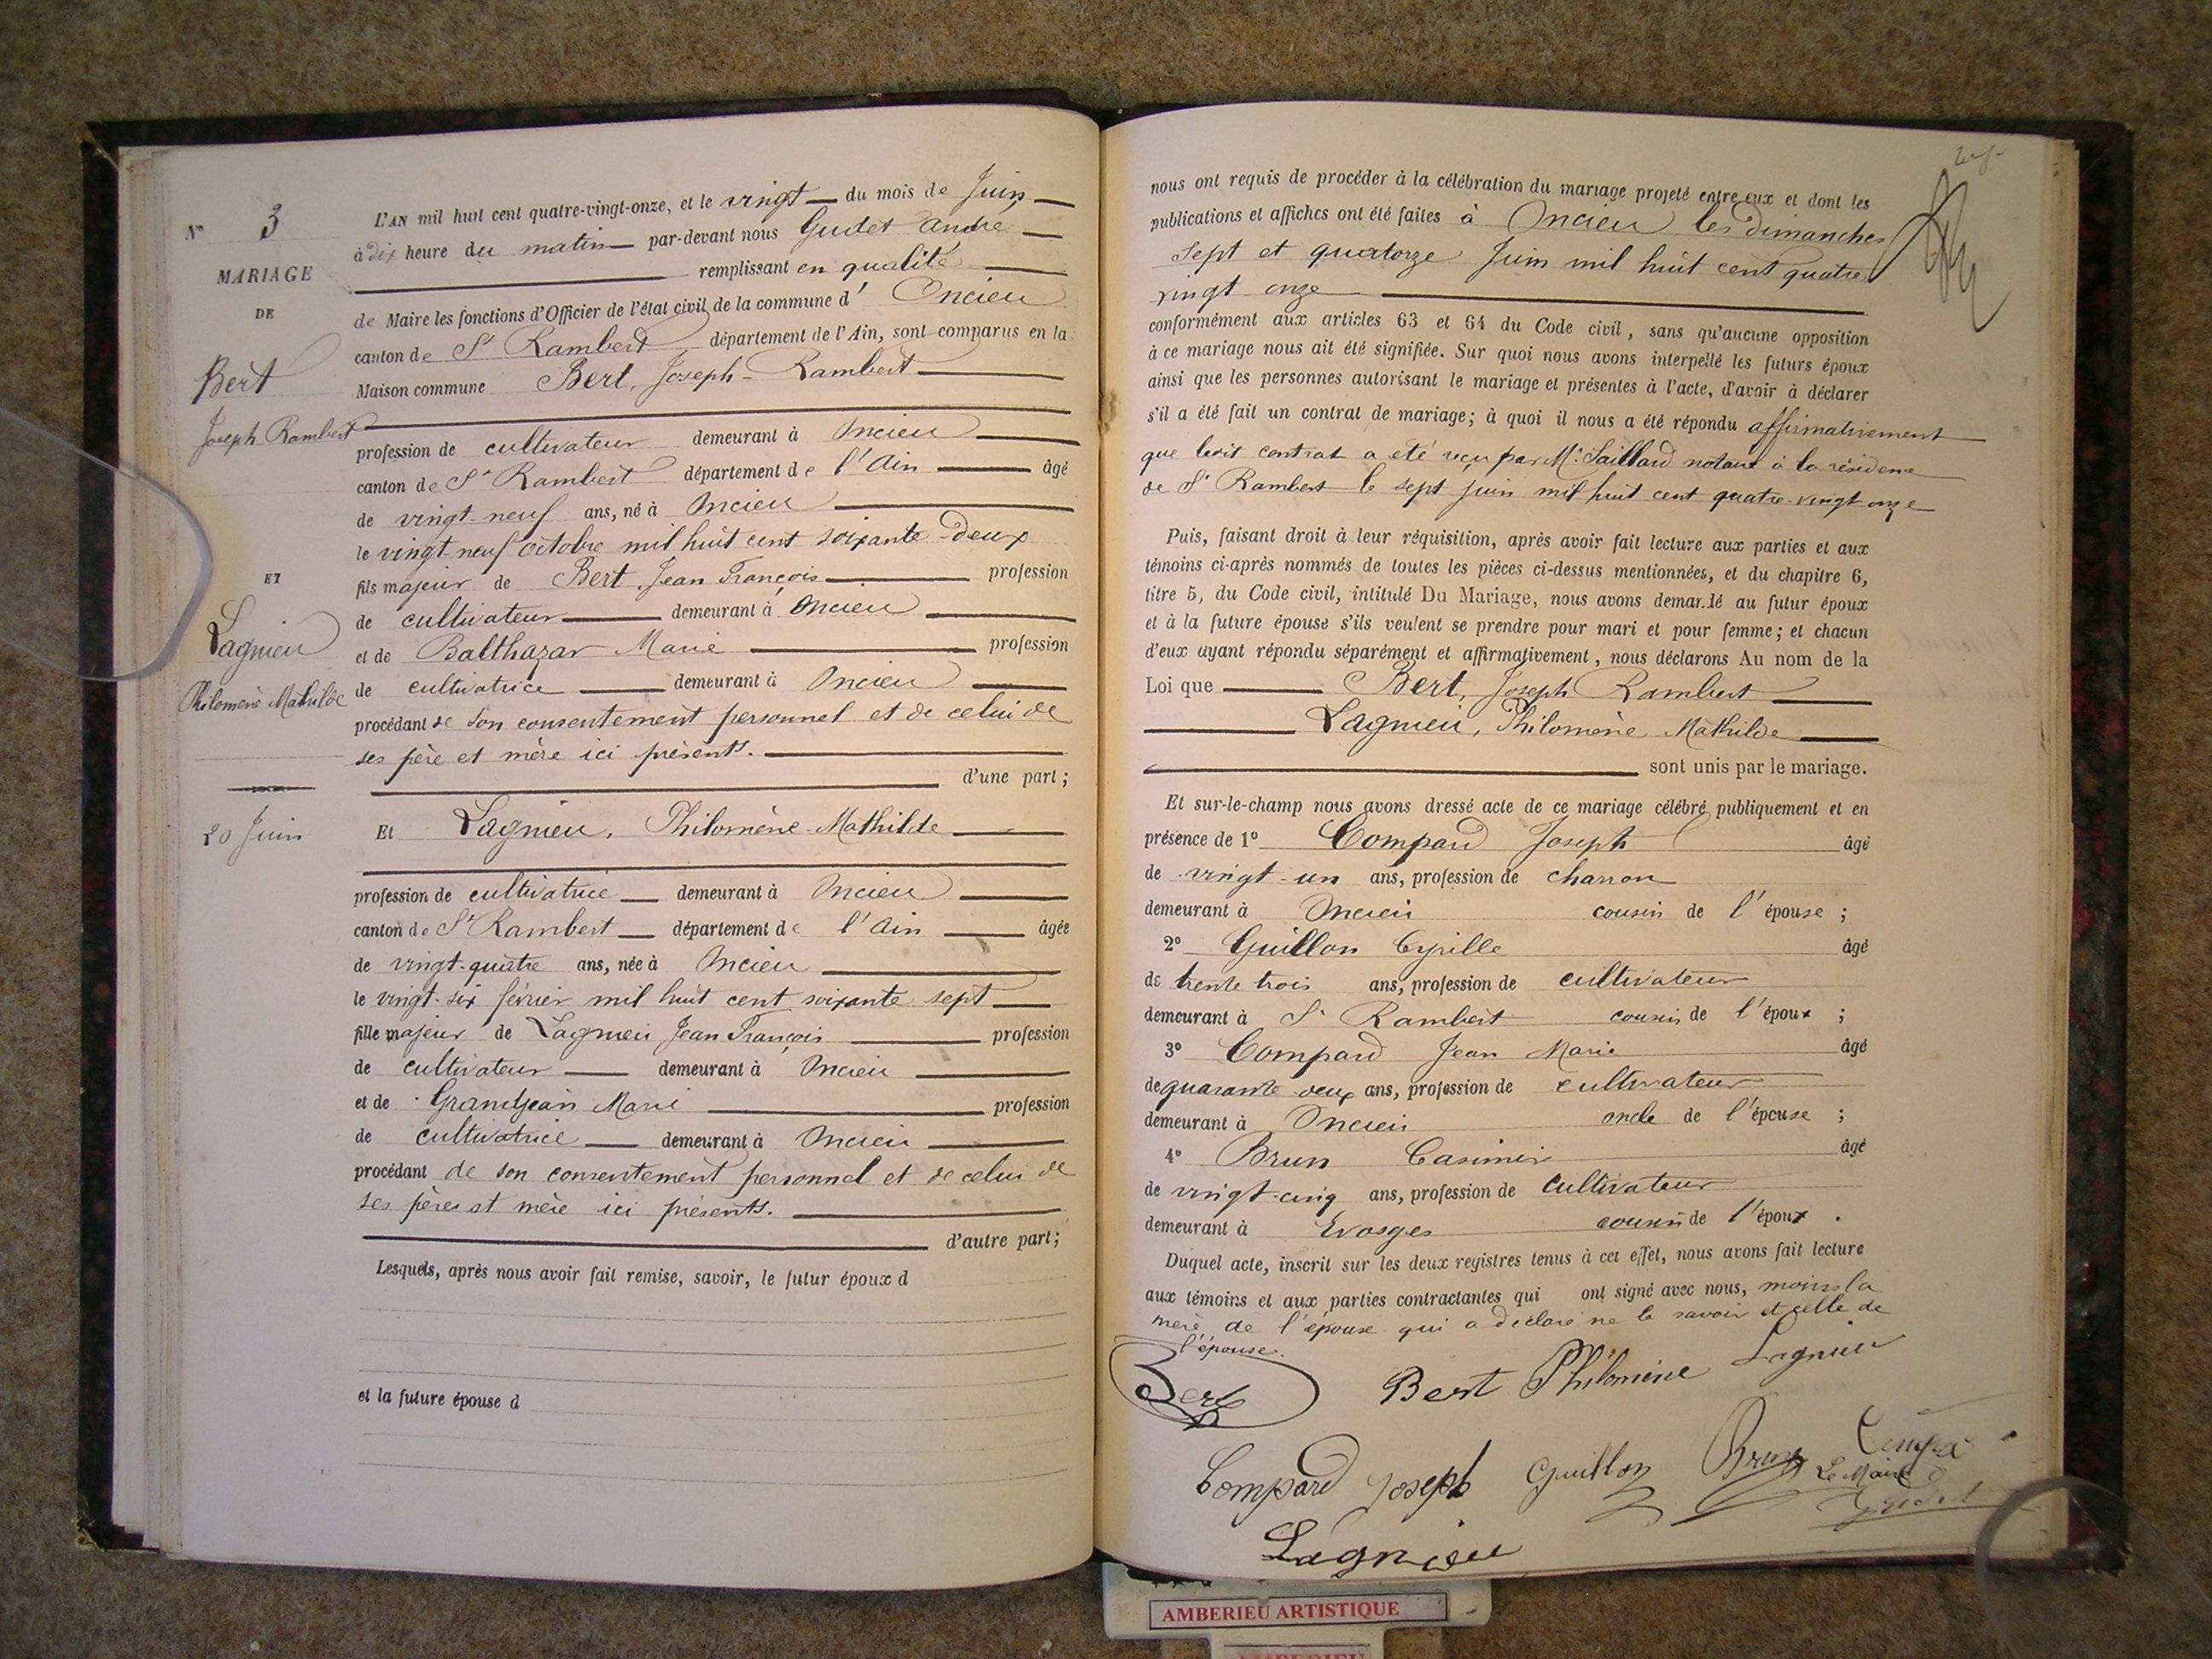 N° 3
MARIAGE
DE
Bert
Joseph Rambert
ET
Lagnieu
Philomène Mathilde
20 Juin
L'AN mil huit cent quatre-vingt-onze, et le vingt du mois de Juin
à dix heure du matin par-devant nous Gudet André
remplissant en qualité
de Maire les fonctions d'Officier de l'état civil de la commune d' Oncieu
canton de St Rambert département de l'Ain, sont comparus en la
Maison commune Bert, Joseph-Rambert
profession de cultivateur demeurant à Oncieu
canton de St Rambert département de l'Ain âgé
de vingt-neuf ans, né à Oncieu
le vingt neuf octobre mil huit cent soixante-deux
fils majeur de Bert Jean François profession
de cultivateur demeurant à Oncieu
et de Balthazar Marie profession
de cultivatrice demeurant à Oncieu
procédant de son consentement personnel et de celui de
ses père et mère ici présents.
d'une part;
Et Lagnieu, Philomène-Mathilde
profession de cultivatrice demeurant à Oncieu
canton de St Rambert département de l'Ain âgée
de vingt-quatre ans, née à Oncieu
le vingt-six février mil huit cent soixante sept
fille majeur de Lagnieu Jean François profession
de cultivateur demeurant à Oncieu
et de Grandjean Marie profession
de cultivatrice demeurant à Oncieu
procédant de son consentement personnel et de celui de
ses pères et mère ici présents.
d'autre part;
Lesquels, après nous avoir fait remise, savoir, le futur époux d
et la future épouse d
nous ont requis de procéder à la célébration du mariage projeté entre eux et dont les
publications et affiches ont été faites à Oncieu les Dimanches
sept et quatorze Juin mil huit cent quatre
vingt onze
conformément aux articles 63 et 64 du Code civil, sans qu'aucune opposition
à ce mariage nous ait été signifiée. Sur quoi nous avons interpellé les futurs époux
ainsi que les personnes autorisant le mariage et présentes à l'acte, d'avoir à déclarer
s'il a été fait un contrat de mariage; à quoi il nous a été répondu affirmativement
que ledit contrat a été reçu par Me Saillard notaire à la résidence
de St Rambert le sept juin mil huit cent quatre-vingt onze
Puis, faisant droit à leur réquisition, après avoir fait lecture aux parties et aux
témoins ci-après nommés de toutes les pièces ci-dessus mentionnées, et du chapitre 6,
titre 5, du Code civil, intitulé Du Mariage, nous avons demandé au futur époux
et à la future épouse s'ils veulent se prendre pour mari et pour femme; et chacun
d'eux ayant répondu séparément et affirmativement, nous déclarons Au nom de la
Loi que Bert, Joseph Rambert
Lagnieu, Philomène Mathilde
sont unis par le mariage.
Et sur-le-champ nous avons dressé acte de ce mariage célébré publiquement et en
présence de 1° Compard Joseph âgé
de vingt-un ans, profession de charron
demeurant à Oncieu cousin de l'épouse;
2° Guillon Cyrille âgé
de trente trois ans, profession de cultivateur
demeurant à St Rambert cousin de l'époux;
3° Compard Jean Marie âgé
de quarante deux ans, profession de cultivateur
demeurant à Oncieu oncle de l'épouse;
4° Brun Casimir âgé
de vingt-cinq ans, profession de cultivateur
demeurant à Evosges cousin de l'époux.
Duquel acte, inscrit sur les deux registres tenus à cet effet, nous avons fait lecture
aux témoins et aux parties contractantes qui ont signé avec nous, moins la
mère de l'épouse qui a déclaré ne le savoir et celle de
l'épouse.
Bert Bert Philomène Lagnieu
Compard Joseph Guillon Brun
Le Maire
Gudet
Lagnieu
AMBERIEU ARTISTIQUE
AMBERIEU